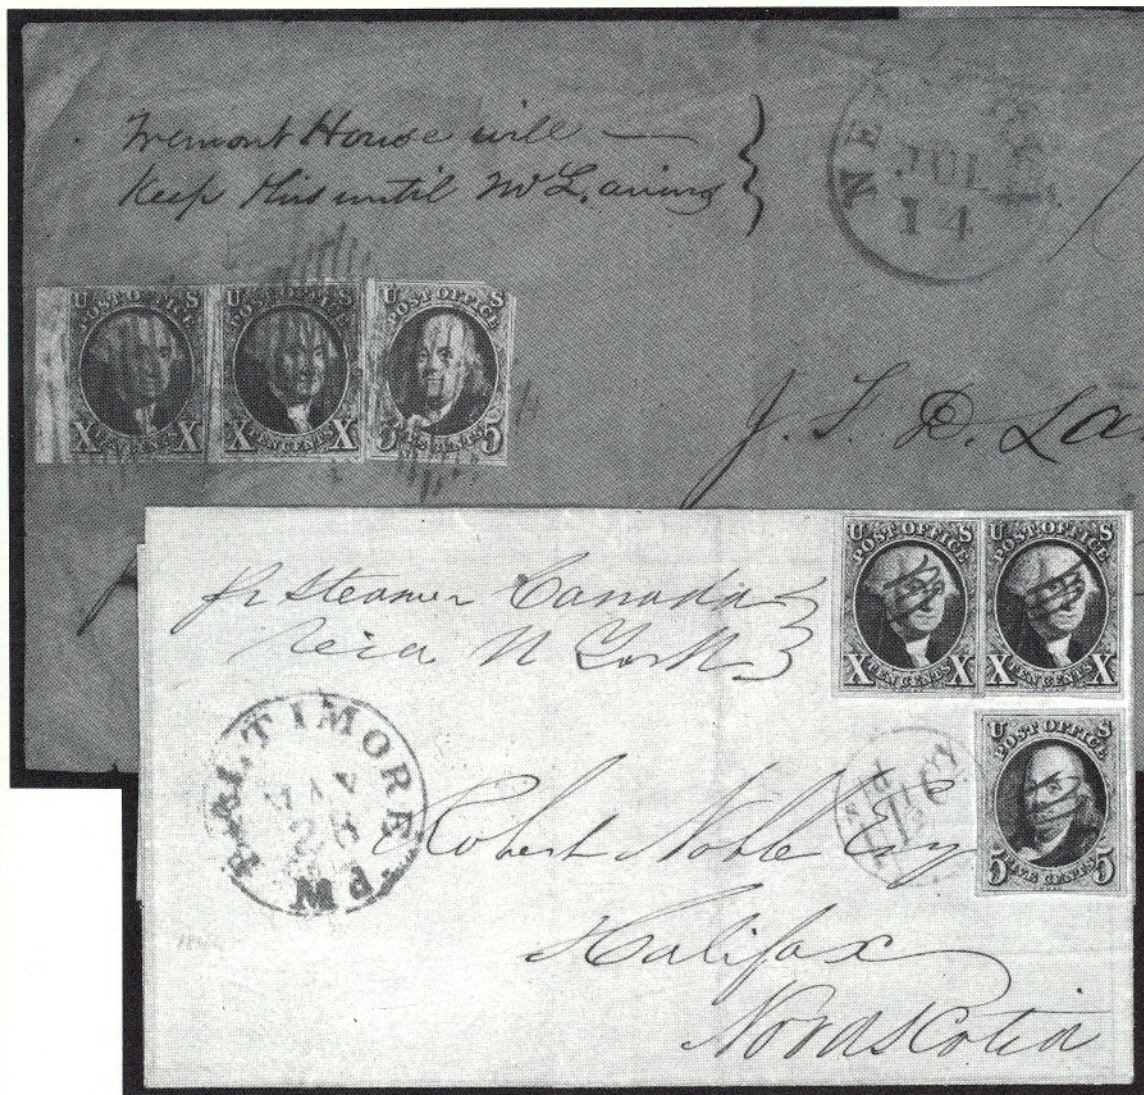 Tremont House will —
Keep this until Mr L. arrives
NE
JUL
14
U S
POST OFFICE
X TEN CENTS X
U S
POST OFFICE
X TEN CENTS X
U S
POST OFFICE
5 CENTS 5
J. F. D. La
pr Steamer Canada
via N York
U S
POST OFFICE
X TEN CENTS X
U S
POST OFFICE
X TEN CENTS X
BALTIMORE
Md.
U S
POST OFFICE
5 FIVE CENTS 5
Robert Noble Esq
Halifax
Nova Scotia